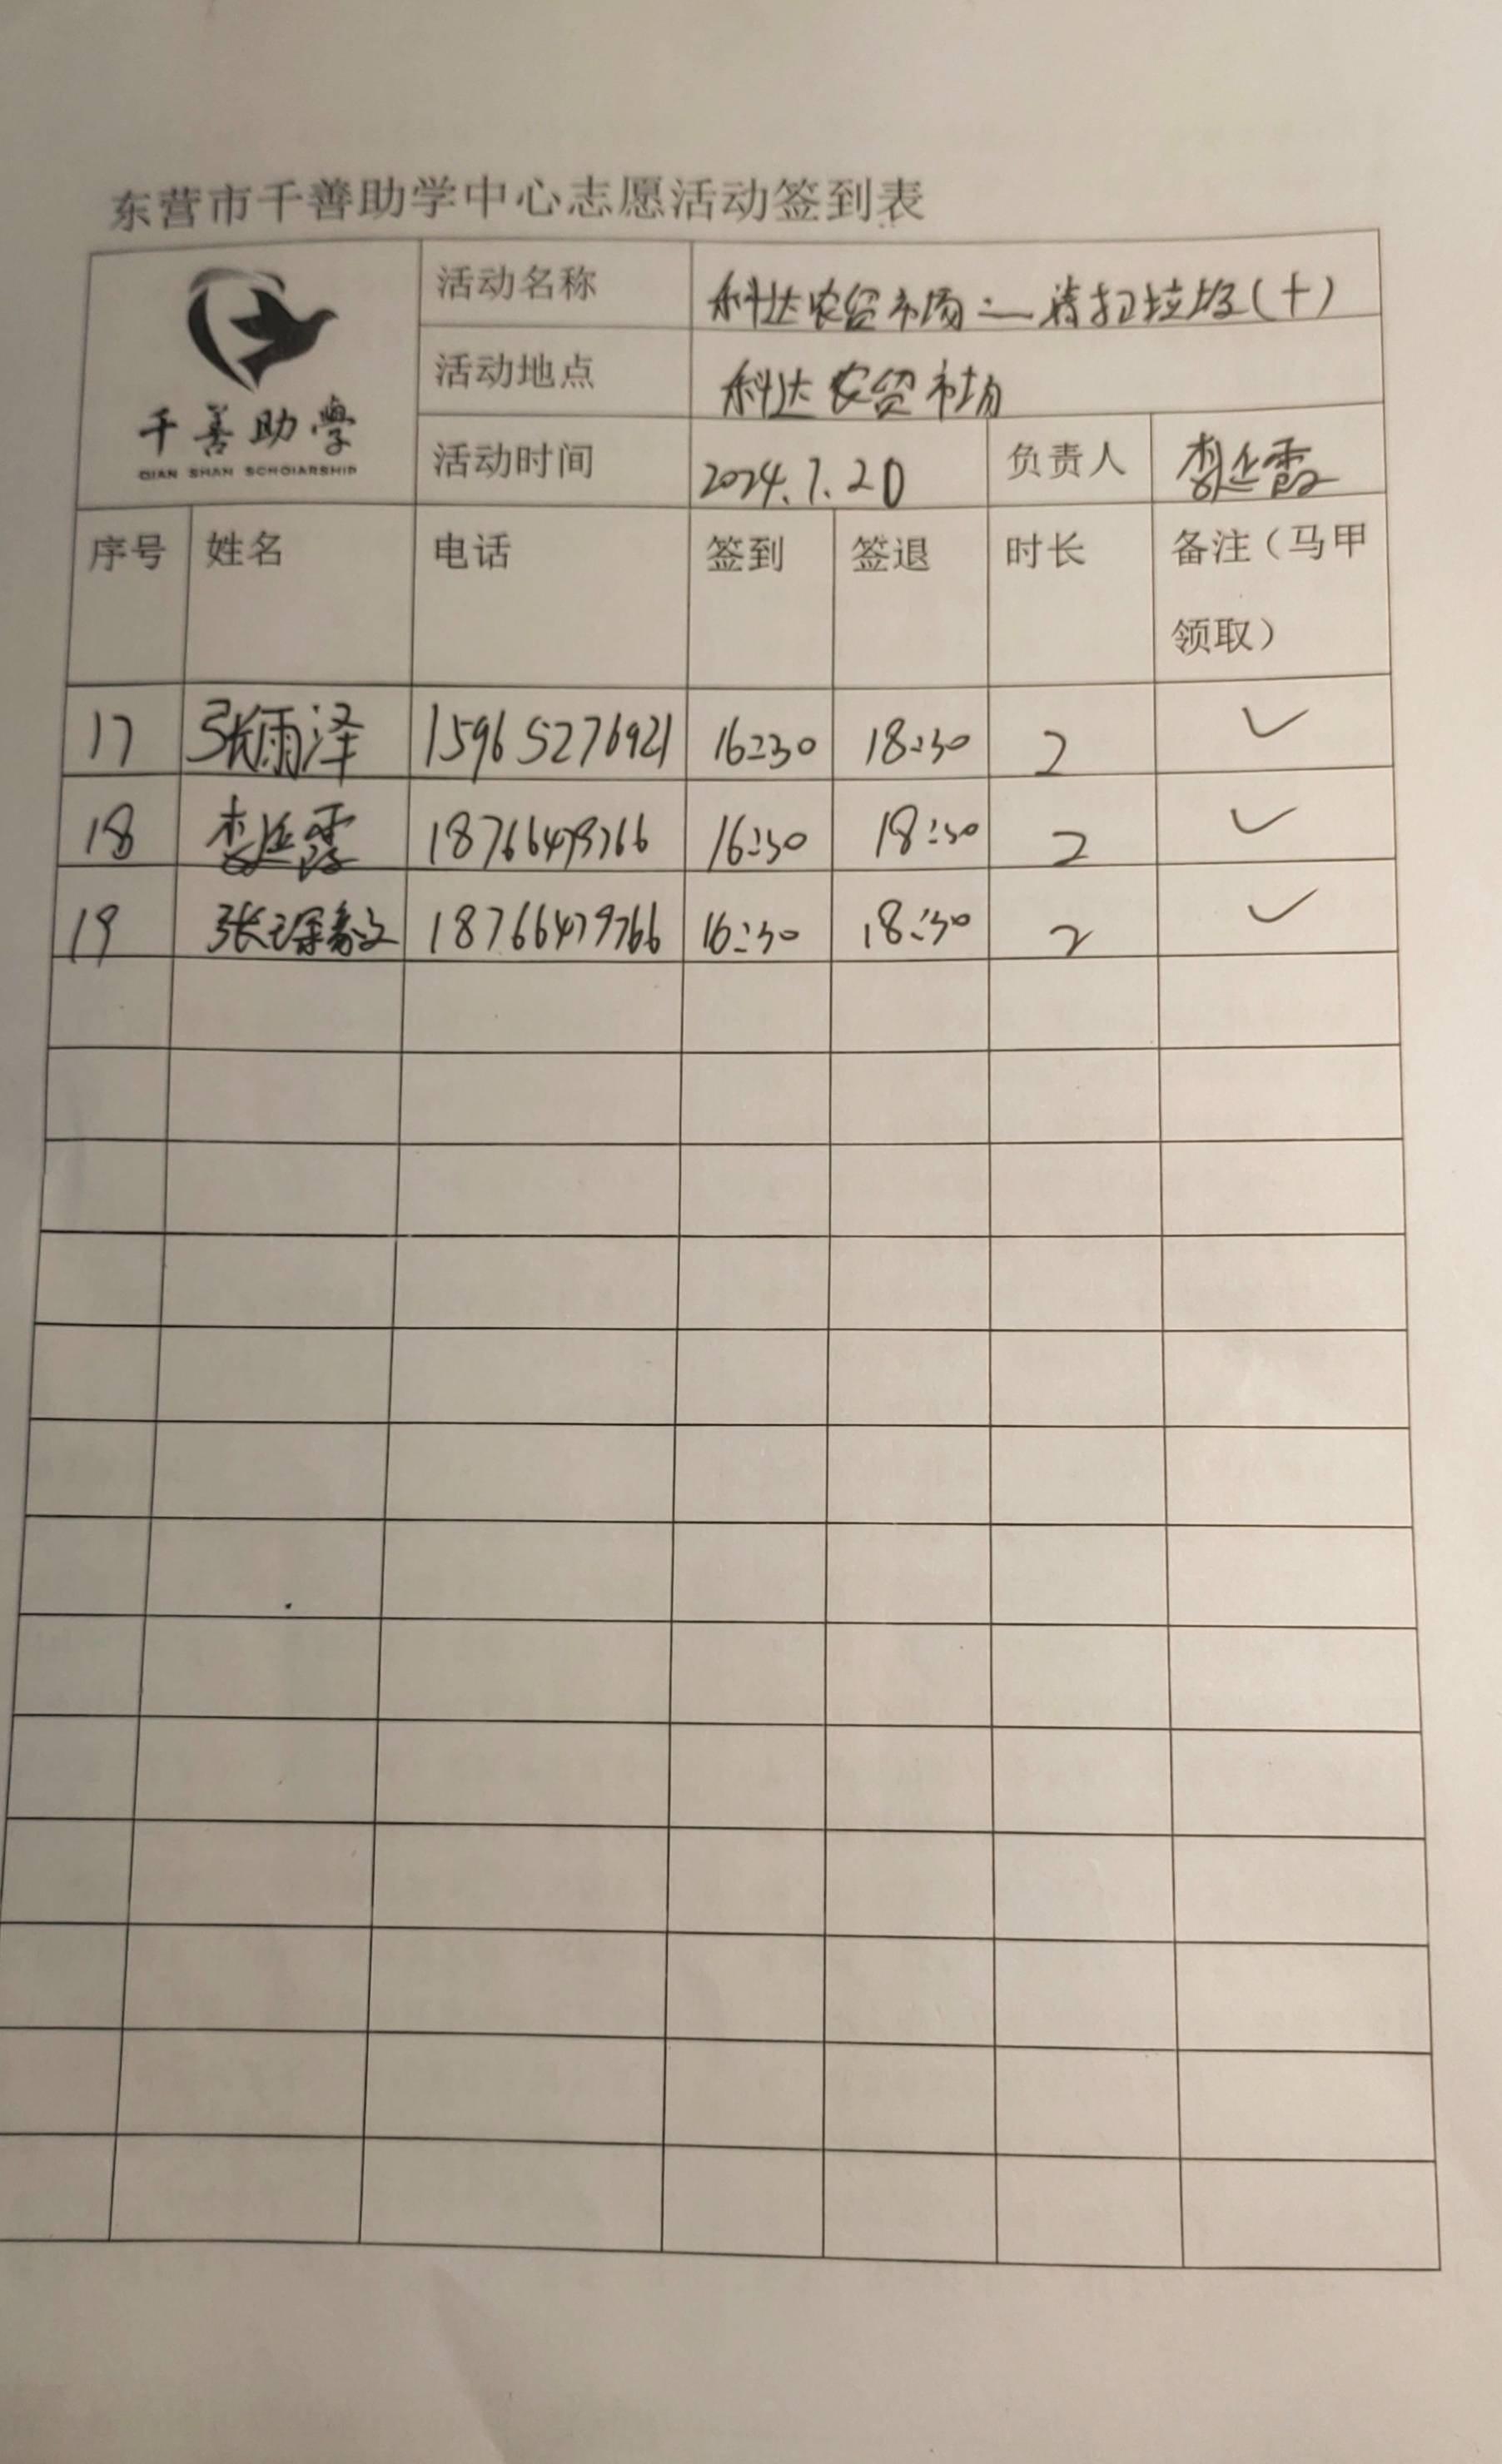 东营市千善助学中心志愿活动签到表
千善助学
QIAN SHAN SCHOIARSHIP
活动名称 科达农贸市场:—清扫垃圾(十)
活动地点 科达农贸市场
活动时间 2024.7.20 负责人 李延霞
序号 姓名 电话 签到 签退 时长 备注(马甲
领取)
17 张雨泽 15965276921 16:30 18:30 2 ✓
18 李延霞 18766479766 16:30 18:30 2 ✓
19 18766479766 16:30 18:30 2 ✓